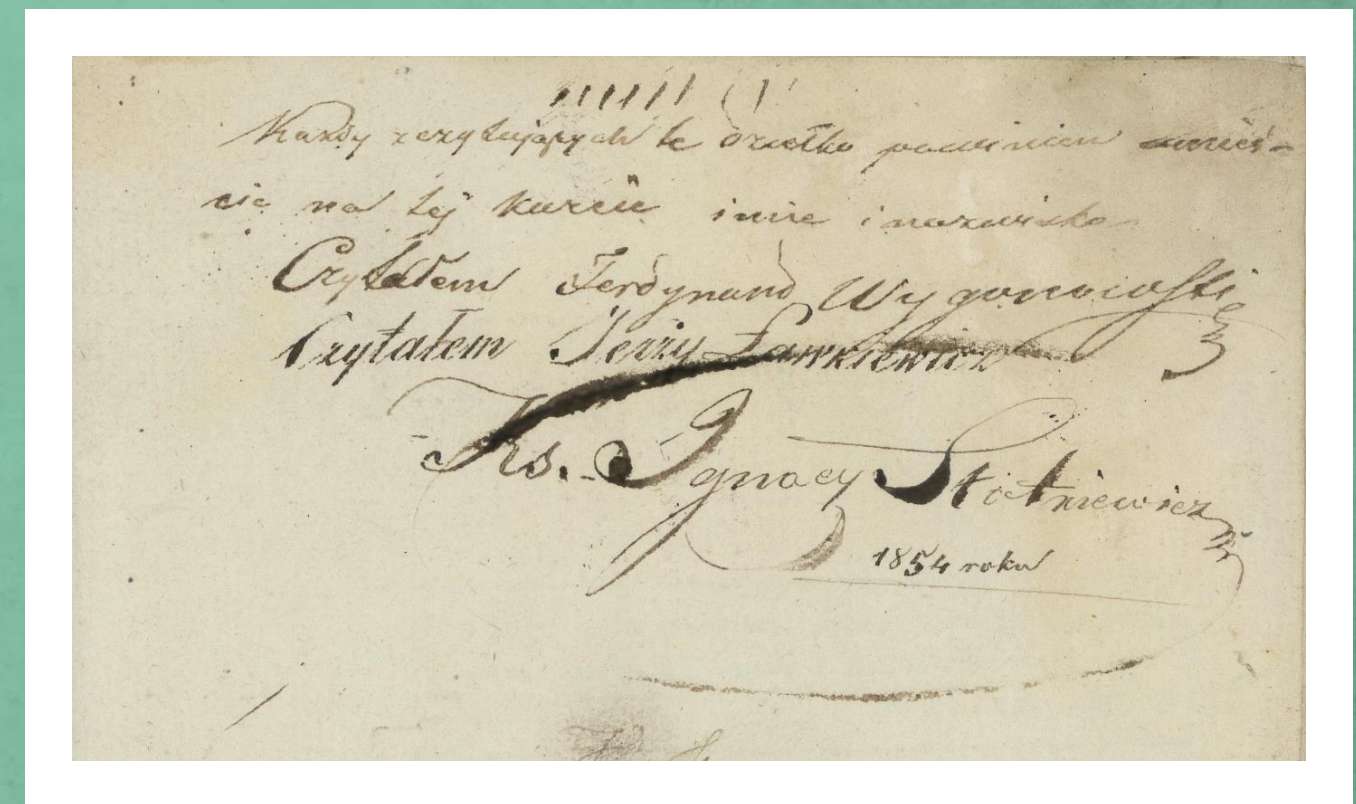 Każdy z czytających te dziełko powinien umieś-
cić na tej karcie imie i nazwisko
Czytałem Ferdynand Wygonowski
Czytałem Jerzy Ławkiewicz
Ks. Ignacy
1854 roku